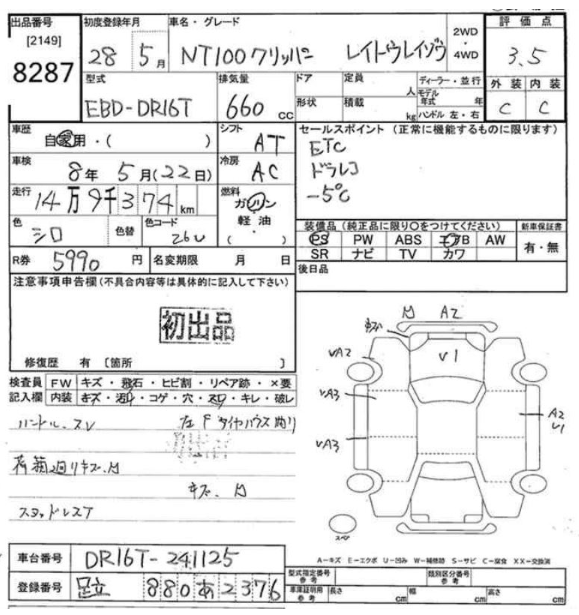 出品番号 初度登録年月 車名・グレード 2WD・4WD 評価点
[2149]
8287
28年 5月 NT100クリッパー レイトウレイゾウ 3.5
型式 排気量 ドア 定員 人 ディーラー・並行 外装 内装
EBD-DR16T 660cc 形状 積載 kg モデル年式 年 ハンドル 左・右 C C
車歴 自家用・( ) シフト AT
セールスポイント (正常に機能するものに限ります)
ETC
ドラレコ
-5℃
車検 8年 5月(22日) 冷房 AC
走行 14万9千374km 燃料 ガソリン 軽油 ( )
色 シロ 色替 色コード 26U
装備品(純正品に限り○をつけてください) 新車保証書
PS PW ABS エアB AW 有・無
SR ナビ TV カワ
R券 5990円 名変期限 月 日
後日品
注意事項申告欄(不具合内容等は具体的に記入して下さい)
初出品
修復歴 有 [箇所 ]
検査員記入欄 FW キズ・飛石・ヒビ割・リペア跡・×要
内装 キズ・汚れ・コゲ・穴・スレ・キレ・破レ
ハンドル.スレ 左Fタイヤハウス曲り
荷箱廻りキズ.凹
キズ.凹
スタッドレスT
凹 A2
キズ
V1
VA2
VA3
VA3
A2
V1
スペア
A-キズ E-エクボ U-凹み W-補修跡 S-サビ C-腐食 XX-交換済
車台番号 DR16T-241125
登録番号 足立 880 あ 2376
型式指定番号 参考 類別区分番号 参考
車庫証明用 参考 長さ cm 幅 cm 高さ cm